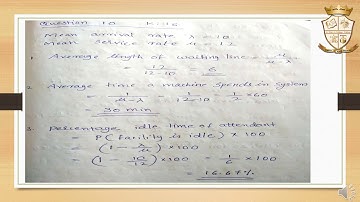 Question 10
Mean arrival rate λ = 10
Mean service rate μ = 12
1. Average length of waiting line = μ / μ-λ
= 12 / 12-10 = 6
2. Average time a machine spends in system
= 1 / μ-λ = 1 / 12-10 = 1/2 × 60
= 30 min
3. Percentage idle time of attendant
= P (facility is idle) × 100
= (1 - λ/μ) × 100
= (1 - 10/12) × 100 = 1/6 × 100
= 16.67%